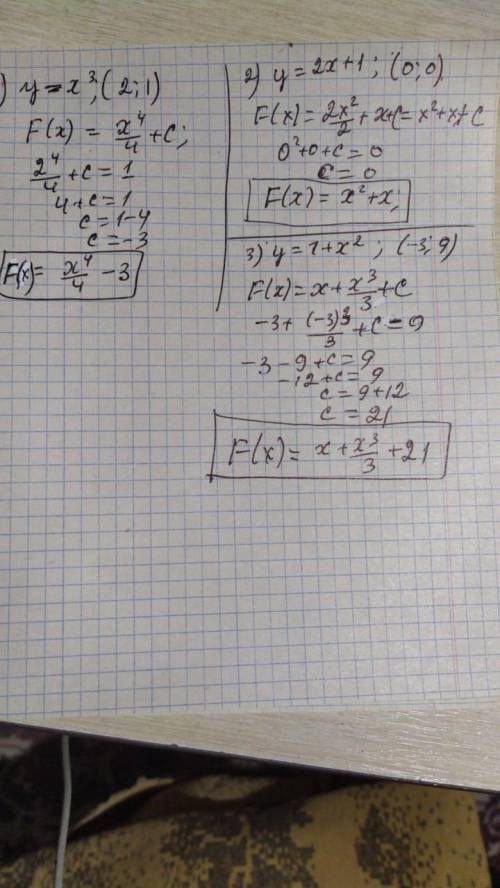 ) y = x³; (2; 1)
F(x) = x⁴/4 + C;
2⁴/4 + C = 1
4 + C = 1
C = 1 - 4
C = -3
F(x) = x⁴/4 - 3
2) y = 2x+1; (0; 0)
F(x) = 2x²/2 + x + C = x² + x + C
0² + 0 + C = 0
C = 0
F(x) = x² + x;
3) y = 1 + x²; (-3; 9)
F(x) = x + x³/3 + C
-3 + (-3)³/3 + C = 9
-3 - 9 + C = 9
-12 + C = 9
C = 9 + 12
C = 21
F(x) = x + x³/3 + 21